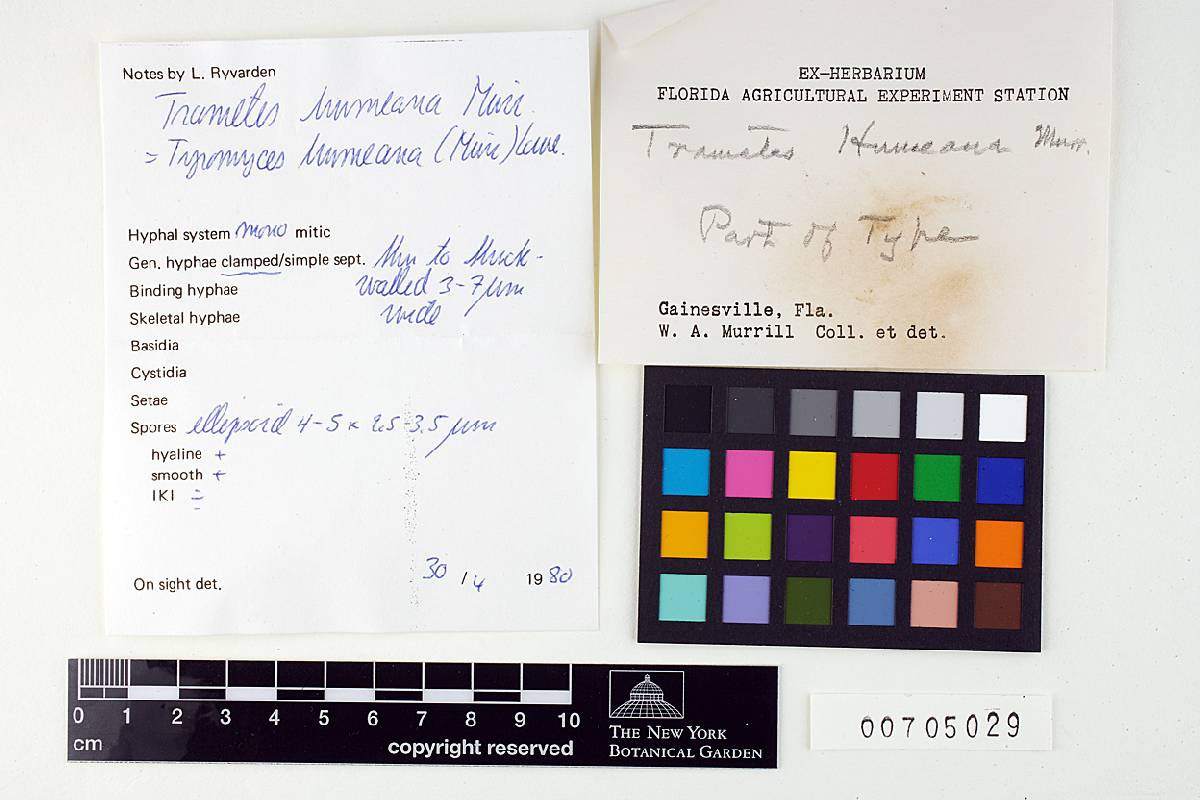 Notes by L. Ryvarden
Trametes humeana Murr.
= Tyromyces humeana (Murr) Lowe.
Hyphal system mono mitic
Gen. hyphae clamped/simple sept. thin to thick-
walled 3-7 µm
wide
Binding hyphae
Skeletal hyphae
Basidia
Cystidia
Setae
Spores ellipsoid 4-5 x 2.5-3.5 µm
hyaline +
smooth +
IKI -
On sight det. 30 / 4 1980
EX-HERBARIUM
FLORIDA AGRICULTURAL EXPERIMENT STATION
Trametes Humeana Murr.
Part of Type
Gainesville, Fla.
W. A. Murrill Coll. et det.
0 1 2 3 4 5 6 7 8 9 10
cm
copyright reserved
THE NEW YORK
BOTANICAL GARDEN
00705029